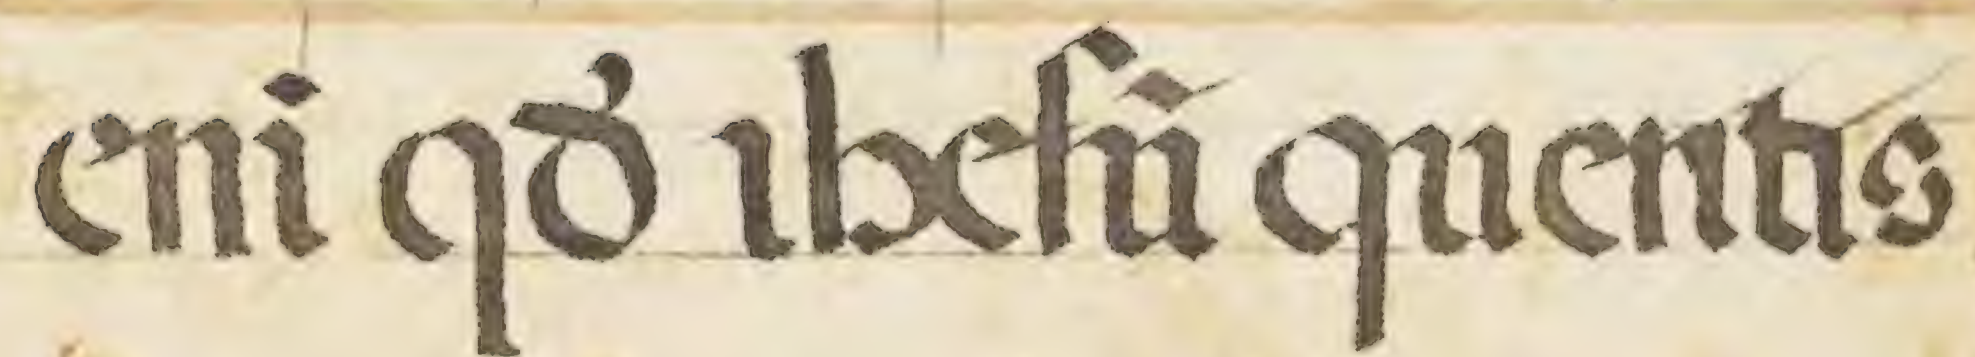 enī qď ihesū quentis